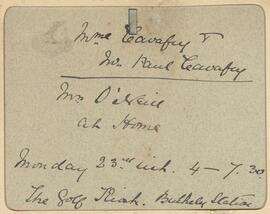 Mme Cavafy &
Mr. Paul Cavafy
Mrs O'Neill
at Home
Monday 23rd inst. 4 - 7.30
The Golf Rink. Bulkeley Station